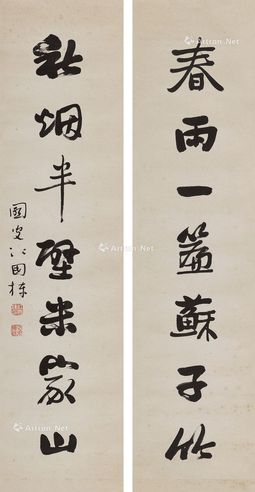 春雨一蘇子竹
秋烟半壁米家山
叟江国棟
Artron.Net
Artron.Net
Artron.Net
Artron.Net